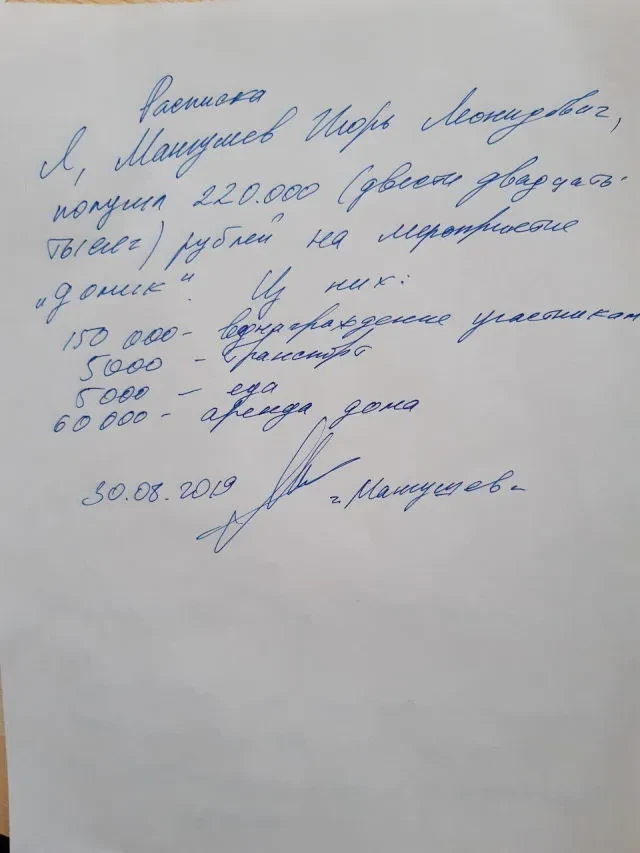 Расписка
Я, Мантушев Игорь Леонидович,
получил 220.000 (двести двадцать
тысяч) рублей на мероприятие
"Домик". Из них:
150 000 - вознаграждение участникам
5000 - транспорт
5000 - еда
60 000 - аренда дома
30.08.2019